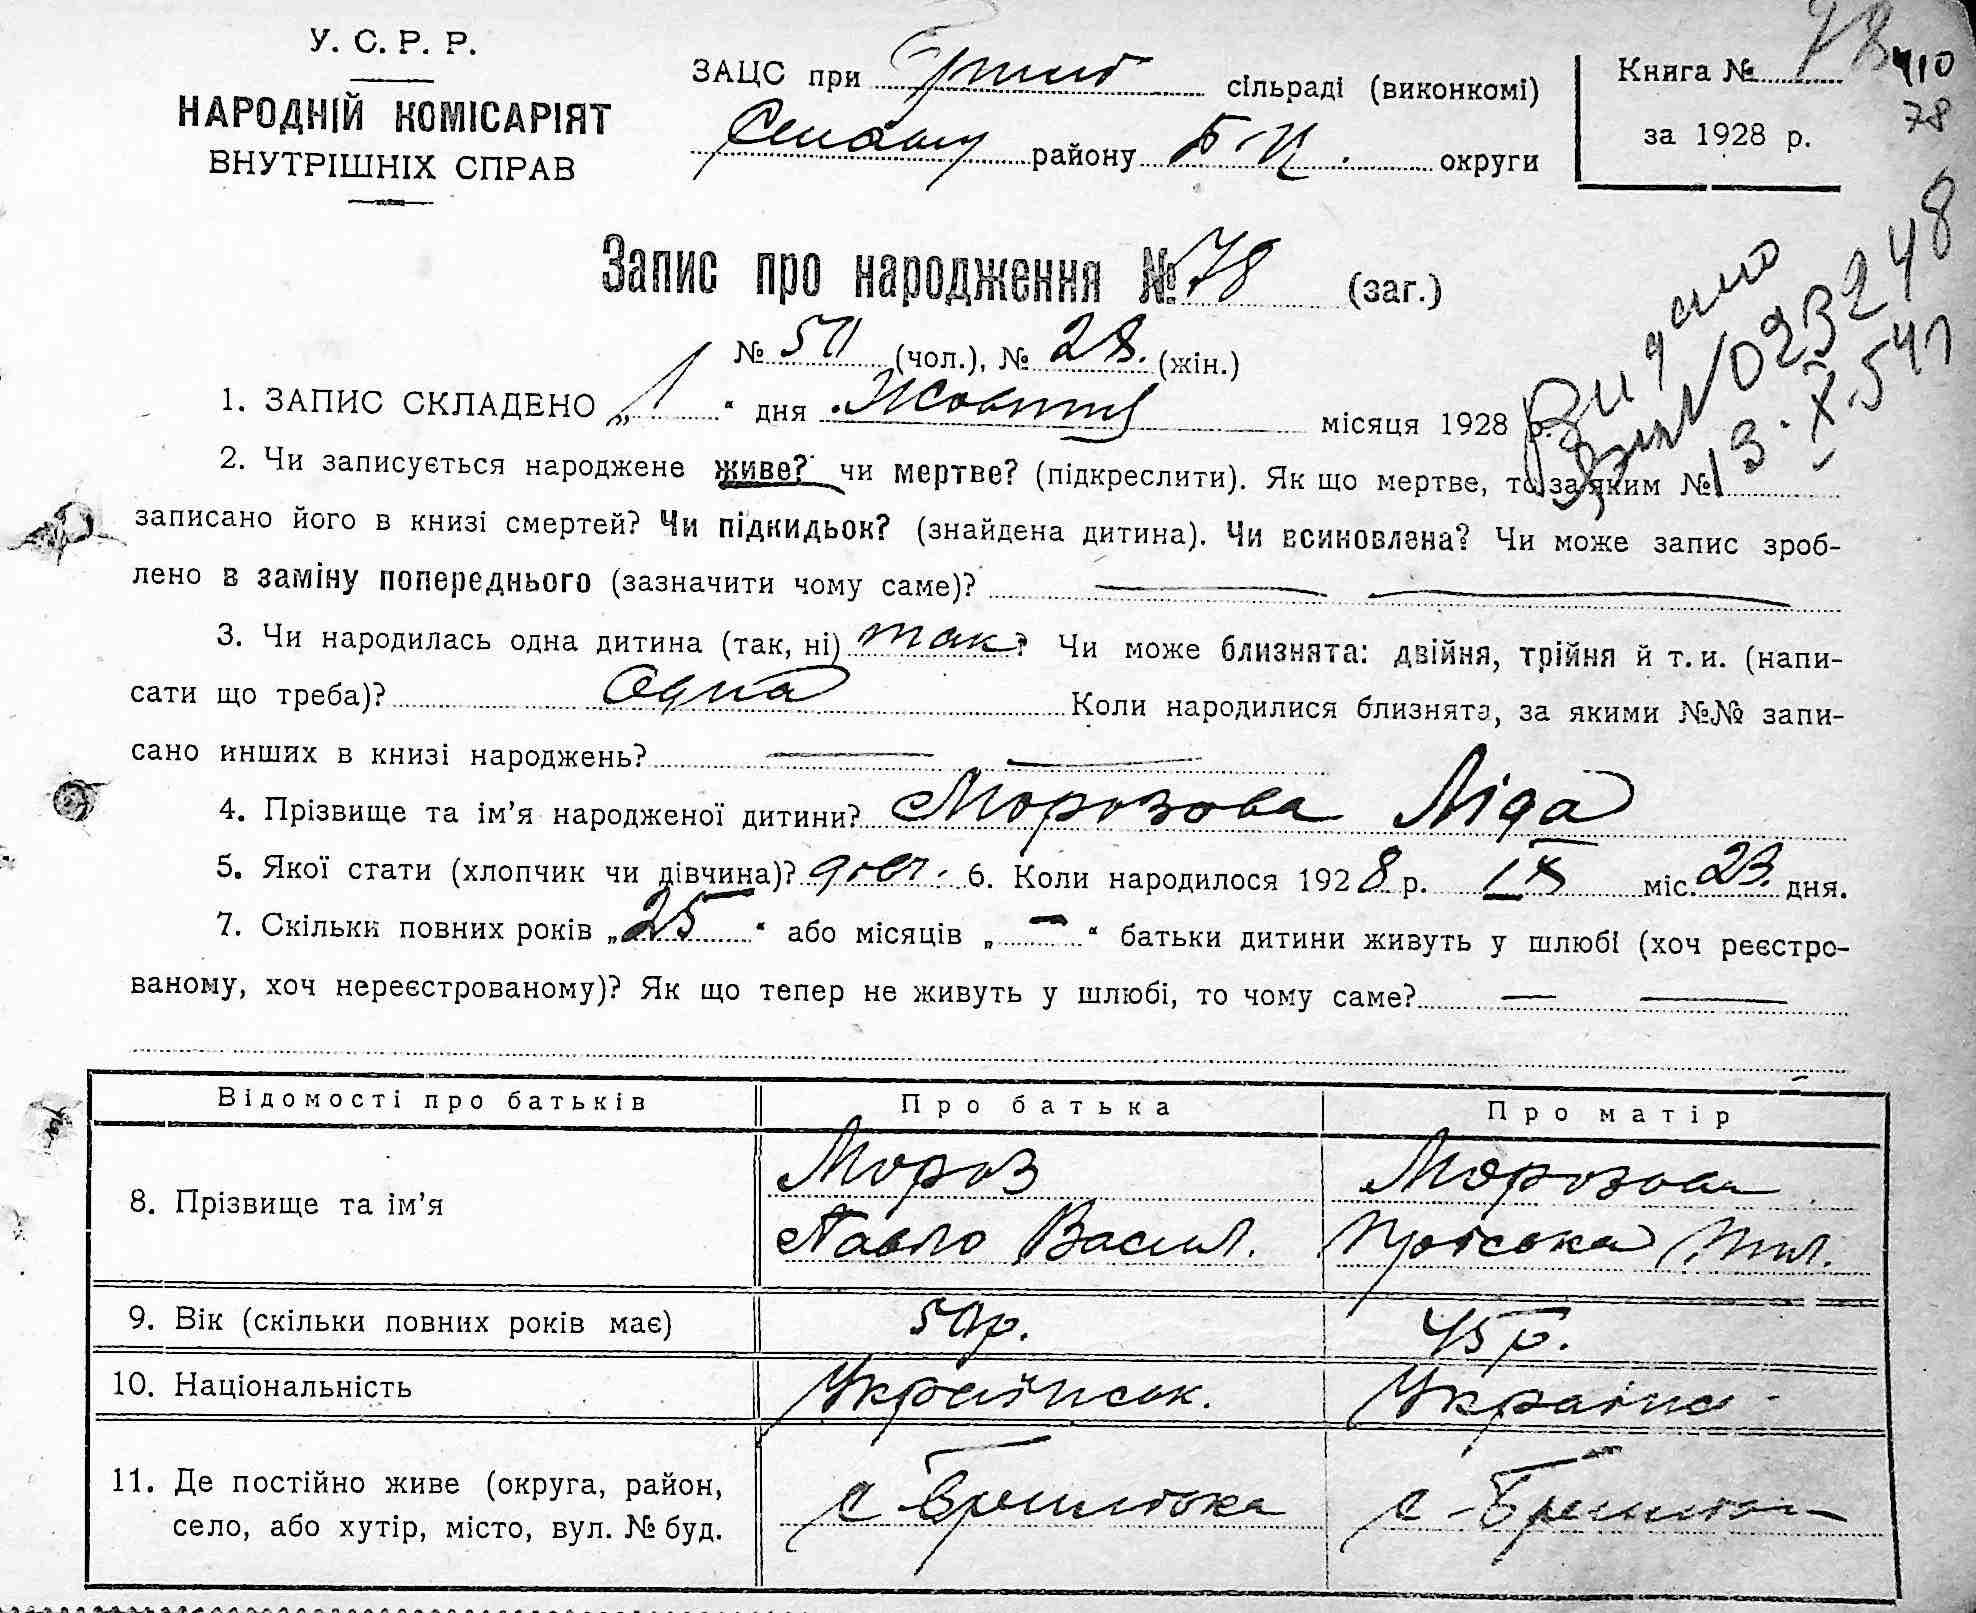 У. С. Р. Р.
НАРОДНІЙ КОМІСАРІЯТ
ВНУТРІШНІХ СПРАВ
ЗАЦС при сільраді (виконкомі)
району Б-Ц. округи
Книга № 78
за 1928 р.
410
78
Запис про народження № 78 (заг.)
№ 50 (чол.), № 28. (жін.)
Видано
023248
13.X.54
1. ЗАПИС СКЛАДЕНО „1“ дня Жовтня місяця 1928 р.
2. Чи записується народжене живе? чи мертве? (підкреслити). Як що мертве, то за яким №
записано його в книзі смертей? Чи підкидьок? (знайдена дитина). Чи всиновлена? Чи може запис зроб-
лено в заміну попереднього (зазначити чому саме)?
3. Чи народилась одна дитина (так, ні) так? Чи може близнята: двійня, трійня й т. и. (напи-
сати що треба)? Одна Коли народилися близнята, за якими №№ запи-
сано инших в книзі народжень?
4. Прізвище та ім’я народженої дитини? Морозова Ліда
5. Якої стати (хлопчик чи дівчина)? дівч. 6. Коли народилося 1928 р. IX міс. 23. дня.
7. Скільки повних років „25“ або місяців „—“ батьки дитини живуть у шлюбі (хоч реєстро-
ваному, хоч нереєстрованому)? Як що тепер не живуть у шлюбі, то чому саме?
Відомості про батьків Про батька Про матір
8. Прізвище та ім’я Мороз Морозова
Павло Васил.
9. Вік (скільки повних років має) 50р. 45р.
10. Національність Українськ. Українс-
11. Де постійно живе (округа, район,
село, або хутір, місто, вул. № буд.